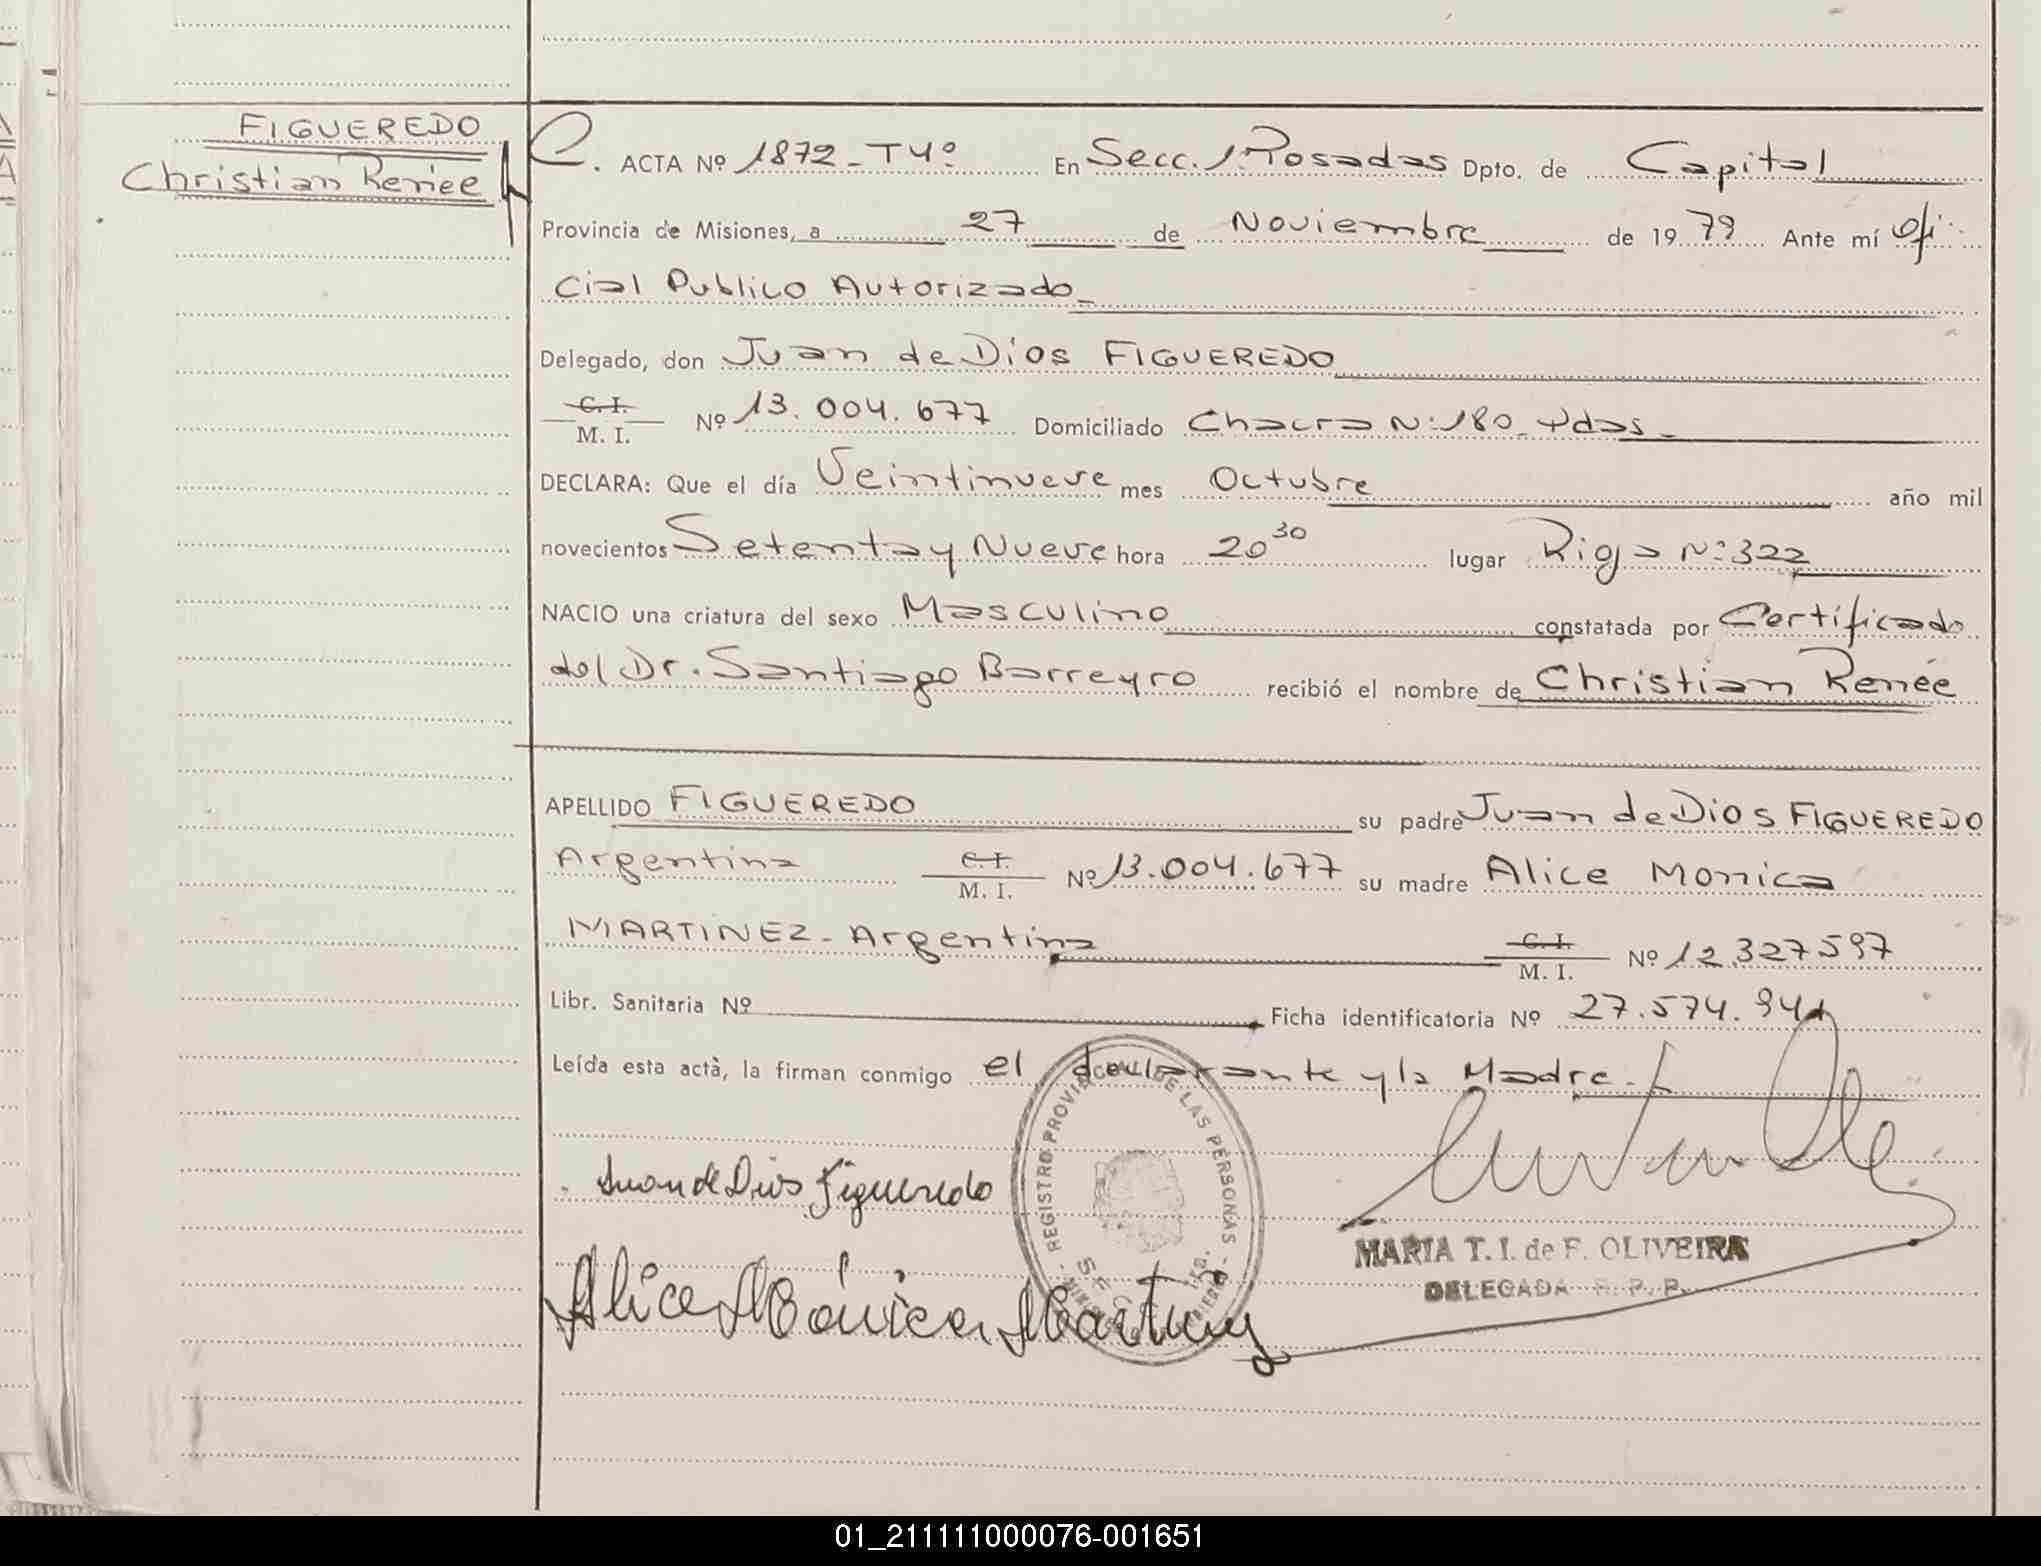 FIGUEREDO
Christian Renée
C. ACTA Nº 1872 - T4º En Secc. 1º Posadas Dpto. de Capital
Provincia de Misiones, a 27 de Noviembre de 1979 Ante mí Ofi
cial Publico Autorizado
Delegado, don Juan de Dios FIGUEREDO
C. I.
M. I. Nº 13.004.677 Domiciliado Chacra Nº 180 - Pdas -
DECLARA: Que el día Veintinueve mes Octubre año mil
novecientos Setenta y Nueve hora 20 30 lugar Rioja Nº 322
NACIO una criatura del sexo Masculino constatada por Certificado
del Dr. Santiago Barreyro recibió el nombre de Christian Renée
APELLIDO FIGUEREDO su padre Juan de Dios FIGUEREDO
Argentina C. I.
M. I. Nº 13.004.677 su madre Alice Monica
MARTINEZ - Argentina C. I.
M. I. Nº 12.327597
Libr. Sanitaria Nº Ficha identificatoria Nº 27.574.941
Leída esta actà, la firman conmigo el declarante y la Madre.
REGISTRO PROVINCIAL DE LAS PERSONAS
Juan de Dios Figueredo
MARIA T. I. de F. OLIVEIRA
DELEGADA R. P. P.
Alice Mónica Martinez
01_211111000076-001651